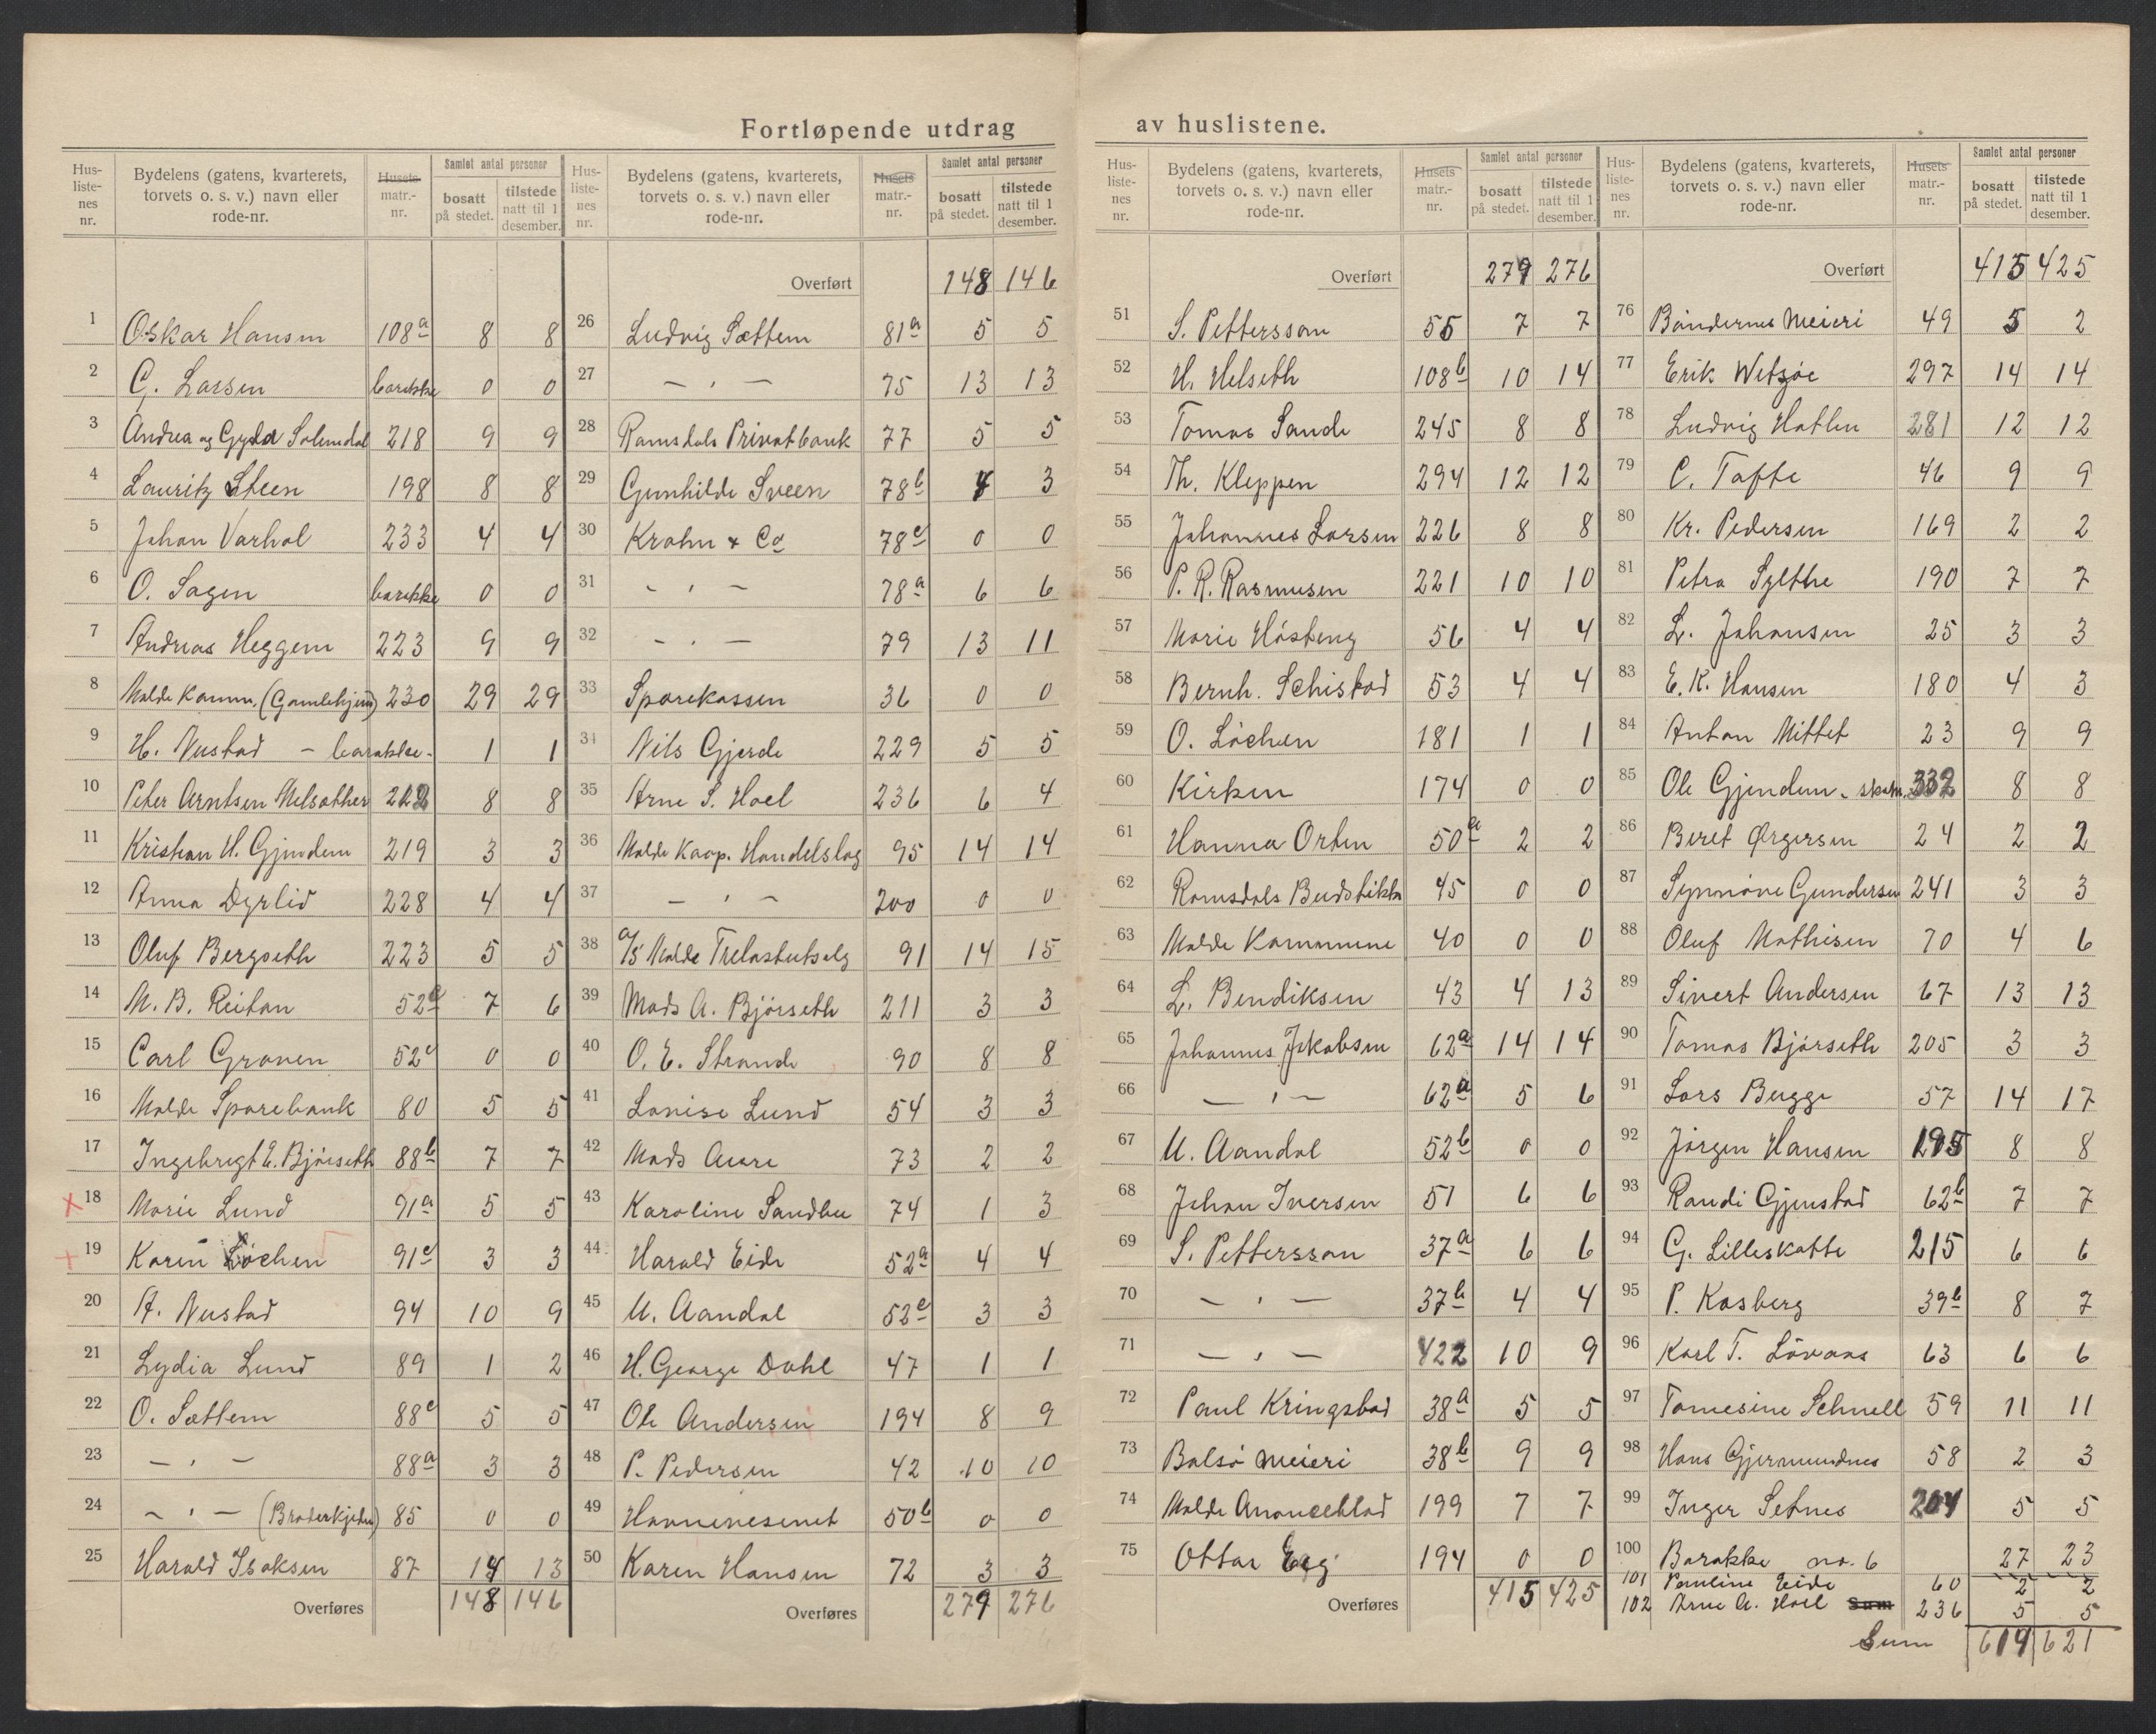 Fortløpende utdrag av huslistene.
Hus-liste-nes nr. | Bydelens (gatens, kvarterets, torvets o. s. v.) navn eller rode-nr. | Husets matr.-nr. | Samlet antal personer | bosatt på stedet. | tilstede natt til 1 desember.
1 Oskar Hansen 108a 8 8
2 G. Larsen barakke 0 0
3 Andrea og Gyda Solemdal 218 9 9
4 Lauritz Steen 198 8 8
5 Johan Varhol 233 4 4
6 O. Sagen barakke 0 0
7 Andreas Heggem 223 9 9
8 Molde Komm. (Gamlehjem) 230 29 29
9 H. Nustad - barakke - 1 1
10 Peter Arntsen Melsæther 212 8 8
11 Kristian H. Gjendem 219 3 3
12 Anna Dyrlid 228 4 4
13 Oluf Bergseth 223 5 5
14 M. B. Reitan 52d 7 6
15 Carl Graven 52c 0 0
16 Molde Sparebank 80 5 5
17 Ingebrigt E. Bjørseth 88b 7 7
18 Marie Lund 91a 5 5
19 Karen Løchen 91c 3 3
20 A. Nustad 94 10 9
21 Lydia Lund 89 1 2
22 O. Sættem 88c 5 5
23 — " — 88a 3 3
24 — " — (Braderkjelen) 85 0 0
25 Harald Isaksen 87 14 13
Overføres 148 146
Hus-liste-nes nr. | Bydelens (gatens, kvarterets, torvets o. s. v.) navn eller rode-nr. | Husets matr.-nr. | Samlet antal personer | bosatt på stedet. | tilstede natt til 1 desember.
Overført 148 146
26 Ludvig Sættem 81a 5 5
27 — " — 75 13 13
28 Ramsdals Privatbank 77 5 5
29 Gunhilde Sveen 78b 4 3
30 Krohn & Co 78c 0 0
31 — " — 78a 6 6
32 — " — 79 13 11
33 Sparekassen 36 0 0
34 Nils Gjerde 229 5 5
35 Arne S. Hoel 236 6 4
36 Molde Koop. Handelslag 95 14 14
37 — " — 200 0 0
38 A/S Molde Trelastutsalg 91 14 15
39 Mads A. Bjørseth 211 3 3
40 O. E. Strande 90 8 8
41 Lovise Lund 54 3 3
42 Mads Aure 73 2 2
43 Karoline Sandbu 74 1 3
44 Harald Eide 52a 4 4
45 U. Aandal 52e 3 3
46 H. George Dahl 47 1 1
47 Ole Andersen 194 8 9
48 P. Pedersen 42 10 10
49 Havnevesenet 50b 0 0
50 Karen Hansen 72 3 3
Overføres 279 276
Hus-liste-nes nr. | Bydelens (gatens, kvarterets, torvets o. s. v.) navn eller rode-nr. | Husets matr.-nr. | Samlet antal personer | bosatt på stedet. | tilstede natt til 1 desember.
Overført 279 276
51 S. Pettersson 55 7 7
52 H. Helseth 108b 10 14
53 Tomas Sande 245 8 8
54 Th. Kleppen 294 12 12
55 Johannes Larsen 226 8 8
56 P. R. Rasmusen 221 10 10
57 Marie Høsteng 56 4 4
58 Bernh. Schistad 53 4 4
59 O. Löchen 181 1 1
60 Kirken 174 0 0
61 Hanna Orten 50a 2 2
62 Romsdals Budstikke 45 0 0
63 Molde Kommune 40 0 0
64 L. Bendiksen 43 4 13
65 Johannes Jakobsen 62a 14 14
66 — " — 62a 5 6
67 U. Aandal 52b 0 0
68 Johan Iversen 51 6 6
69 S. Pettersson 37a 6 6
70 — " — 37b 4 4
71 — " — 422 10 9
72 Paul Kringstad 38a 5 5
73 Bolsø meieri 38b 9 9
74 Molde Anonseblad 199 7 7
75 Ottar Eeg 194 0 0
Overføres 415 425
Hus-liste-nes nr. | Bydelens (gatens, kvarterets, torvets o. s. v.) navn eller rode-nr. | Husets matr.-nr. | Samlet antal personer | bosatt på stedet. | tilstede natt til 1 desember.
Overført 415 425
76 Bøndernes Meieri 49 5 2
77 Erik Wetzøe 297 14 14
78 Ludvig Hatlen 281 12 12
79 C. Tafte 46 9 9
80 Kr. Pedersen 169 2 2
81 Petra Sylthe 190 7 7
82 L. Johansen 25 3 3
83 E. K. Hansen 180 4 3
84 Anton Mittet 23 9 9
85 Ole Gjendem 332 8 8
86 Beret Ørgersen 24 2 2
87 Synnøve Gundersen 241 3 3
88 Oluf Mathisen 70 4 6
89 Sivert Andersen 67 13 13
90 Tomas Bjørseth 205 3 3
91 Lars Bugge 57 14 17
92 Jørgen Hansen 195 8 8
93 Randi Gjenstad 62b 7 7
94 G. Lilleskatte 215 6 6
95 P. Kasberg 39b 8 7
96 Karl T. Lövaas 63 6 6
97 Tomesine Schnell 59 11 11
98 Hans Gjermundnes 58 2 3
99 Inger Setnes 204 5 5
100 Barakke no. 6 27 23
101 Pauline Eide 60 2 2
102 Arne A. Hoel Sum 236 5 5
Sum 619 621